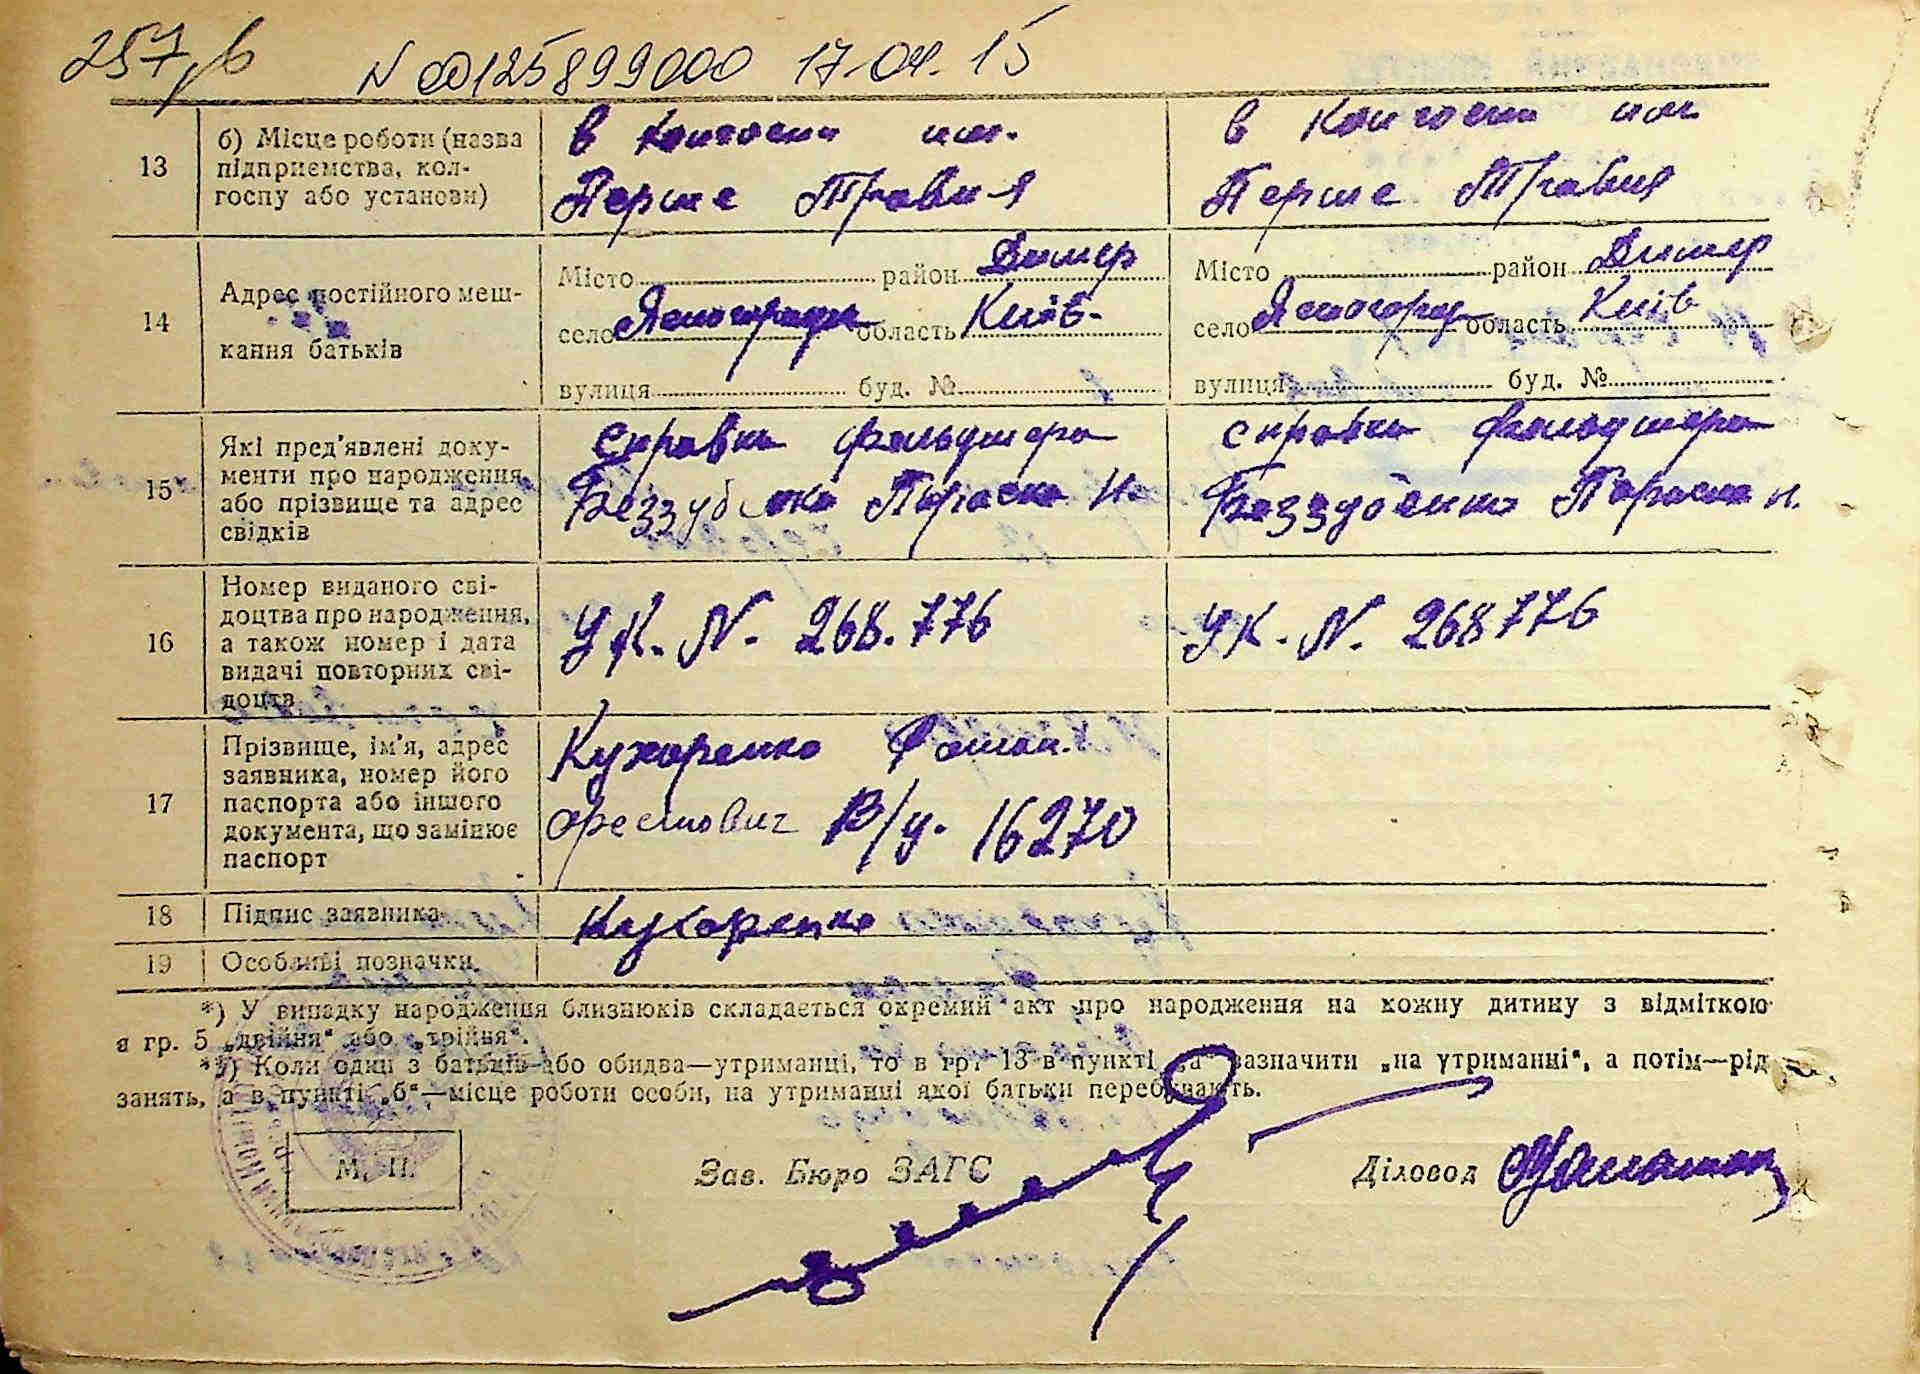 257, б N 00125899000 17.04.15
13 б) Місце роботи (назва підприємства, колгоспу або установи)
в колгоспи им. Перше Травня
в колгоспи им. Перше Травня
14 Адрес постійного мешкання батьків
Місто район Димер
село Ясногородк область Київ-
вулиця буд. №
Місто район Димер
село Ясногород область Київ
вулиця буд. №
15 Які пред'явлені документи про народження або прізвище та адрес свідків
справка фельдшера
Беззубенко Параска Н.
справка фельдшера
Беззубенко Параска Н.
16 Номер виданого свідоцтва про народження, а також номер і дата видачі повторних свідоцтв
УК. N. 268.776
УК. N. 268776
17 Прізвище, ім'я, адрес заявника, номер його паспорта або іншого документа, що замінює паспорт
Кухаренко
Орестович В/у. 16270
18 Підпис заявника
Кухаренко
19 Особливі позначки
*) У випадку народження близнюків складається окремий акт про народження на кожну дитину з відміткою
в гр. 5 „двійня" або „трійня".
*) Коли один з батьків або обидва—утриманці, то в гр. 13 в пункті „а" зазначити „на утриманні", а потім—рід
занять, а в пункті „б"—місце роботи особи, на утриманні якої батьки перебувають.
М. П.
Зав. Бюро ЗАГС
Діловод